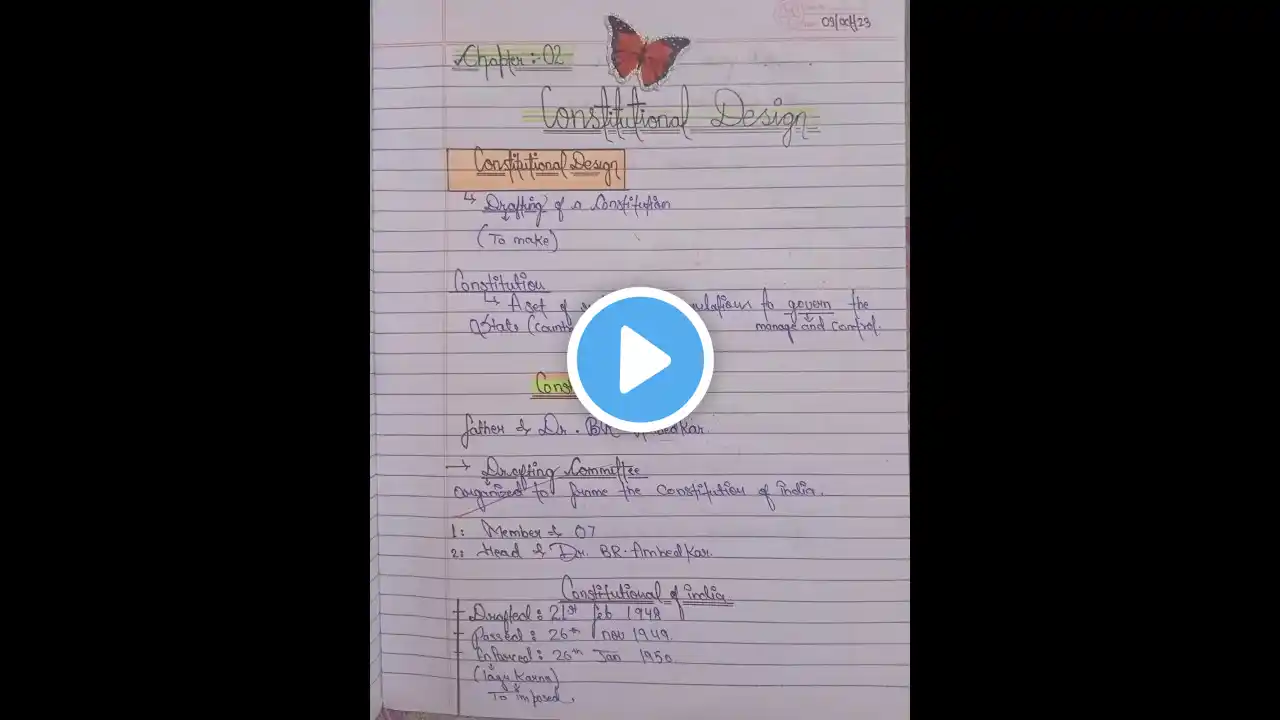 03/Oct/23
Chapter : 02
Constitutional Design
Constitutional Design
↳ Drafting of a Constitution
(To make)
Constitution
↳ A set of to govern the
State manage and control.
father Dr. BR
→ Drafting Committee
organized to frame the Constitution of india.
1: Member 07
2: Head Dr. BR. Ambedkar.
Constitutional of india
Drafted : 21st feb 1948
Passed : 26th nov 1949
Enforced : 26th Jan 1950.
(lagu karna)
To imposed.